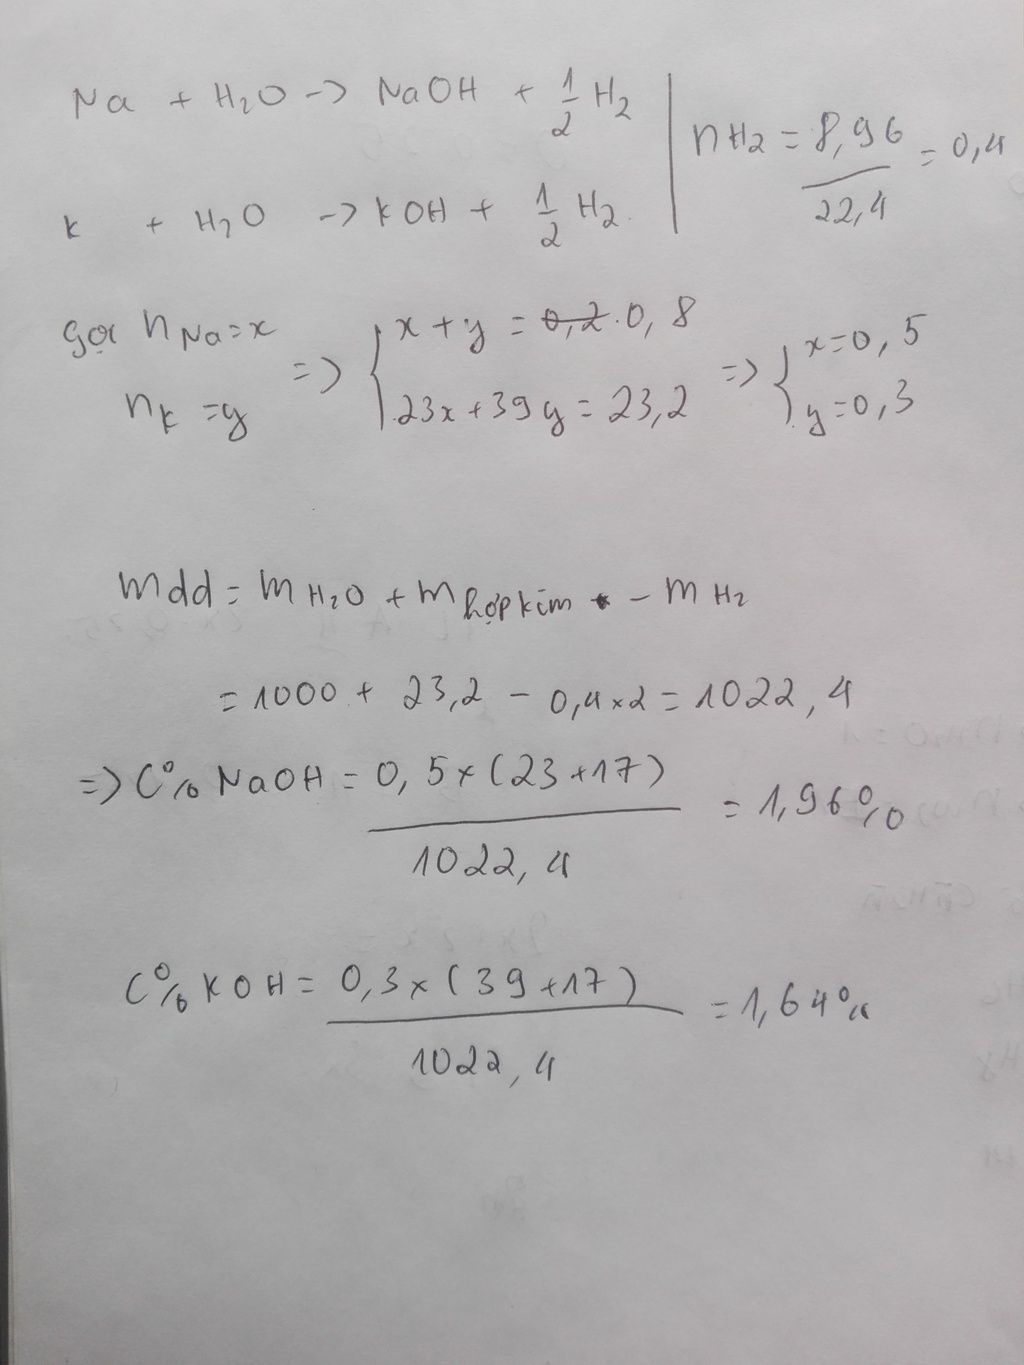 Na + H2O -> NaOH + 1/2 H2
nH2 = 8,96/22,4 = 0,4
K + H2O -> KOH + 1/2 H2
Gọi nNa = x
nK = y
=> { x + y = 0,2 . 0,8
23x + 39y = 23,2
=> { x = 0,5
y = 0,3
mdd = mH2O + mhợp kim - mH2
= 1000 + 23,2 - 0,4 x 2 = 1022,4
=> C% NaOH = 0,5 x (23 + 17) / 1022,4 = 1,96%
C% KOH = 0,3 x (39 + 17) / 1022,4 = 1,64%